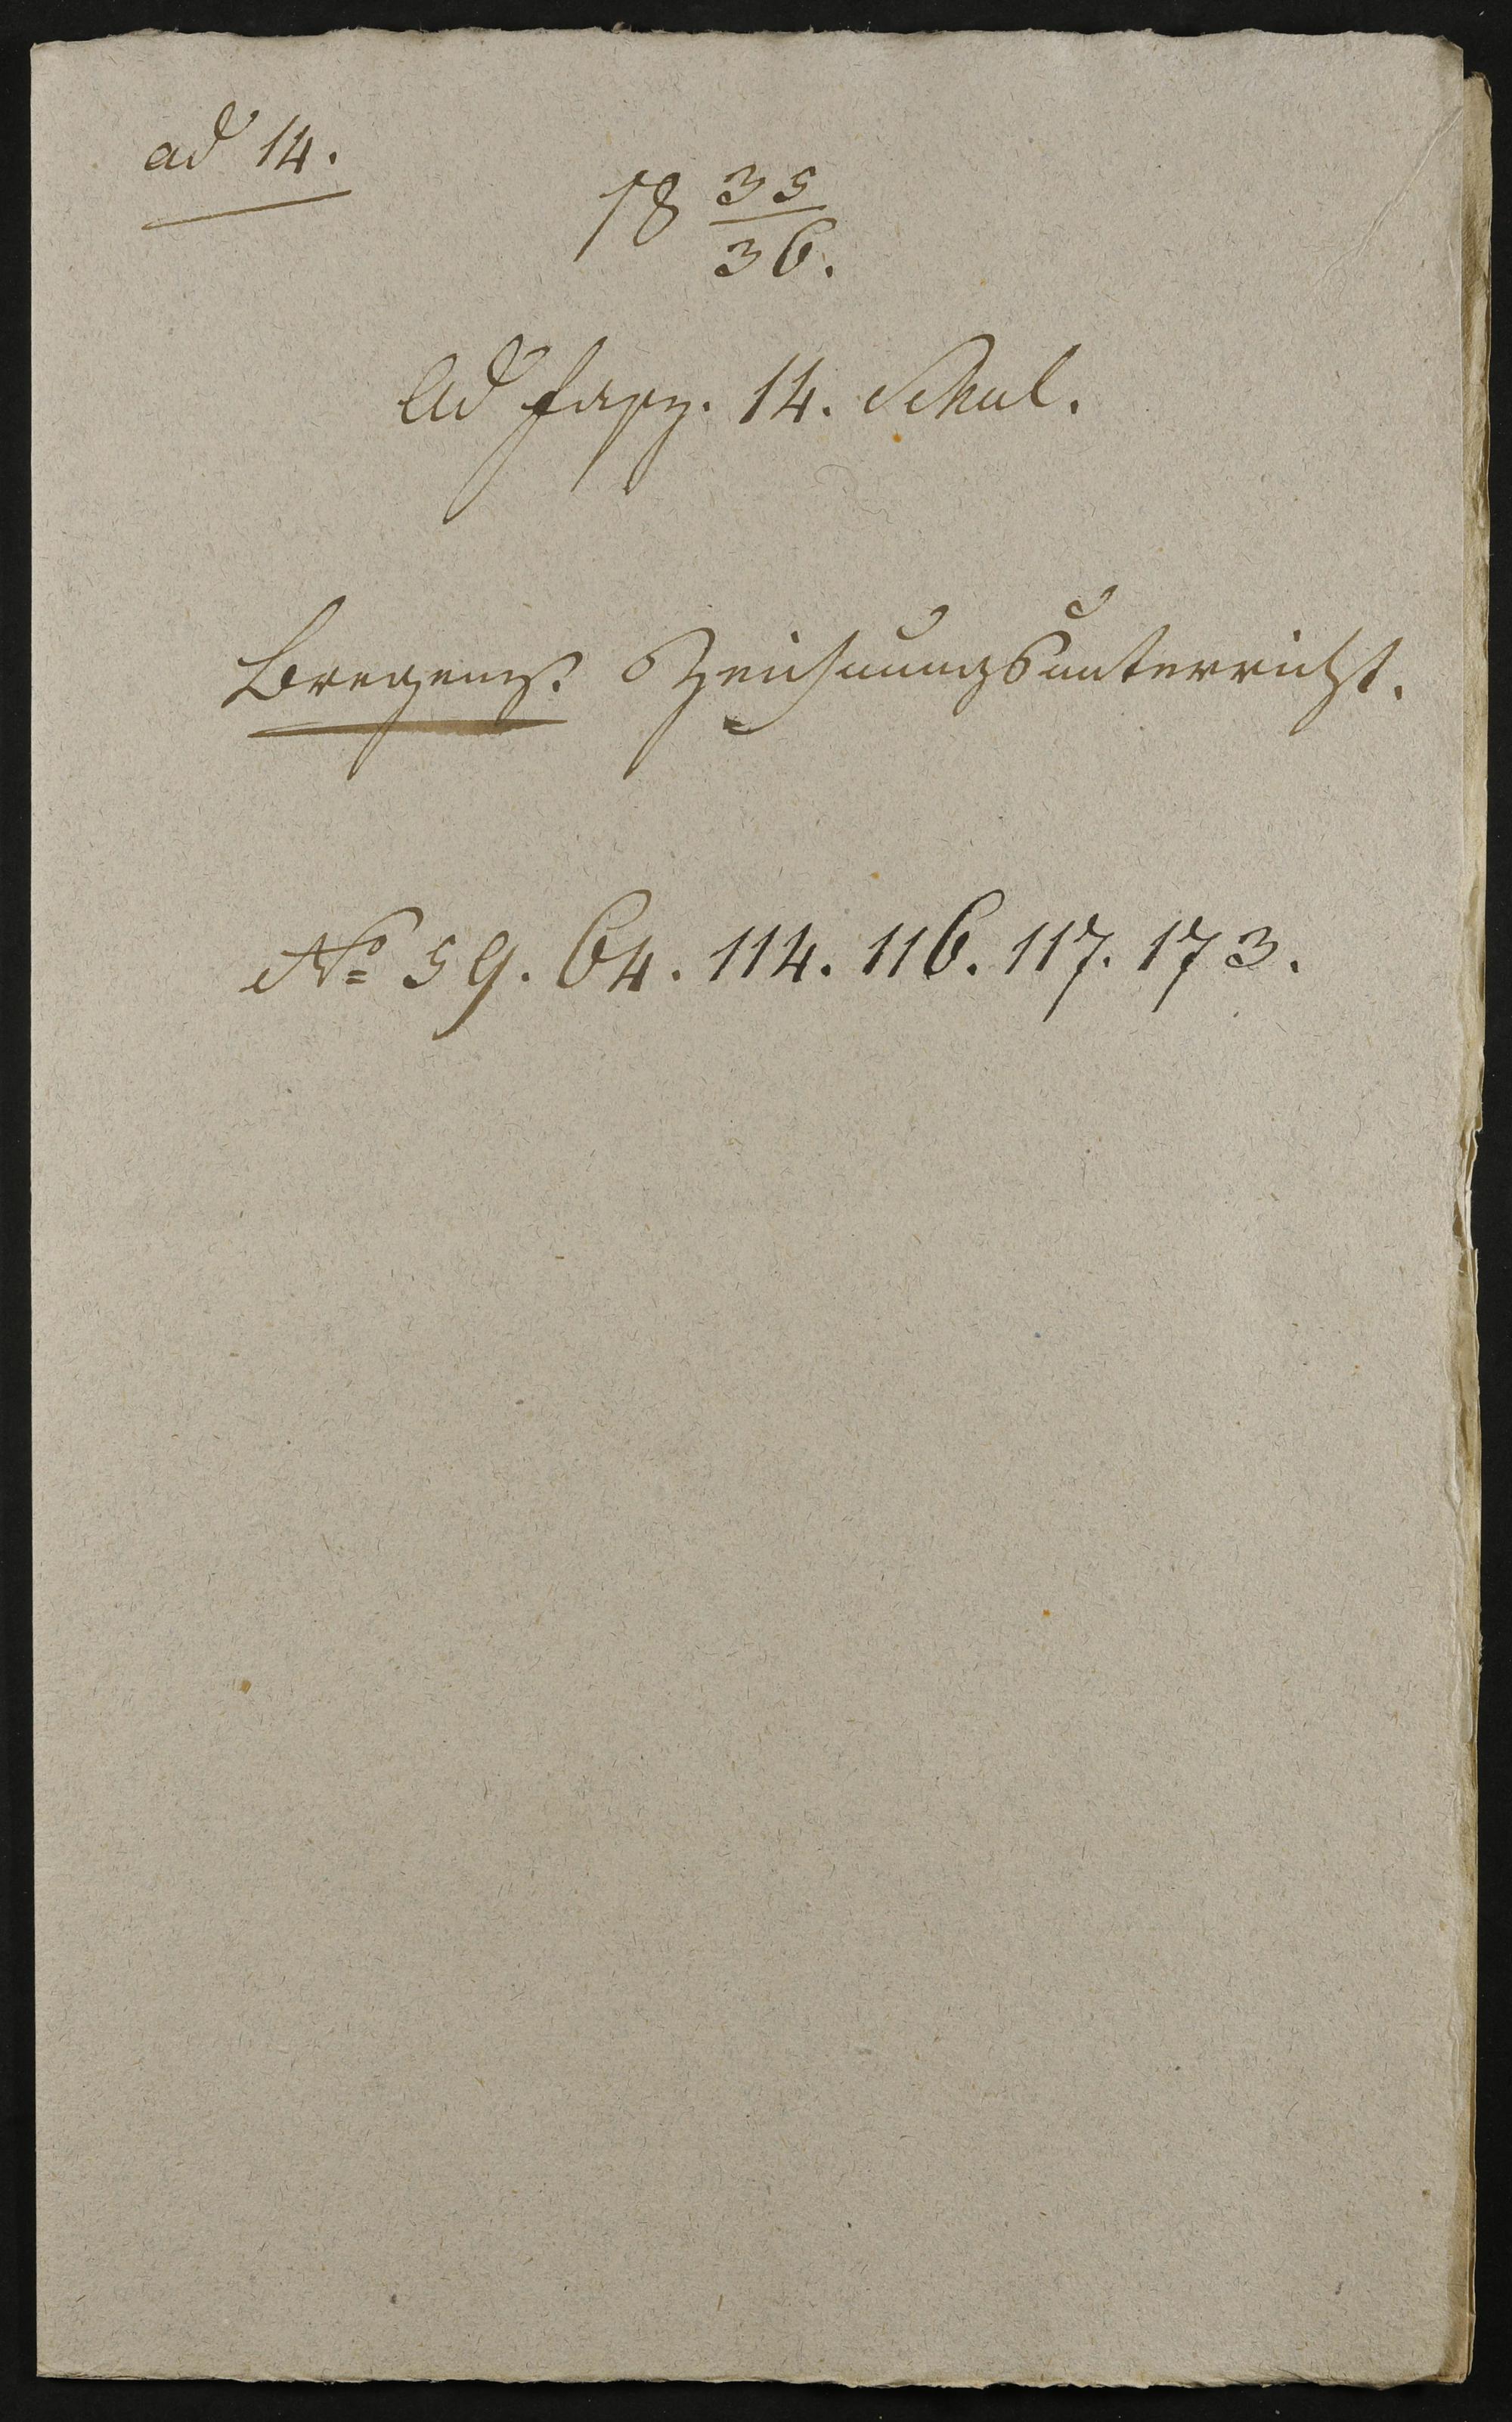 ad 14.
18 35/36.
Ad fasz. 14. Schul.
Bregenz. Zeichnungsunterricht.
No 59. 64. 114. 116. 117. 173.